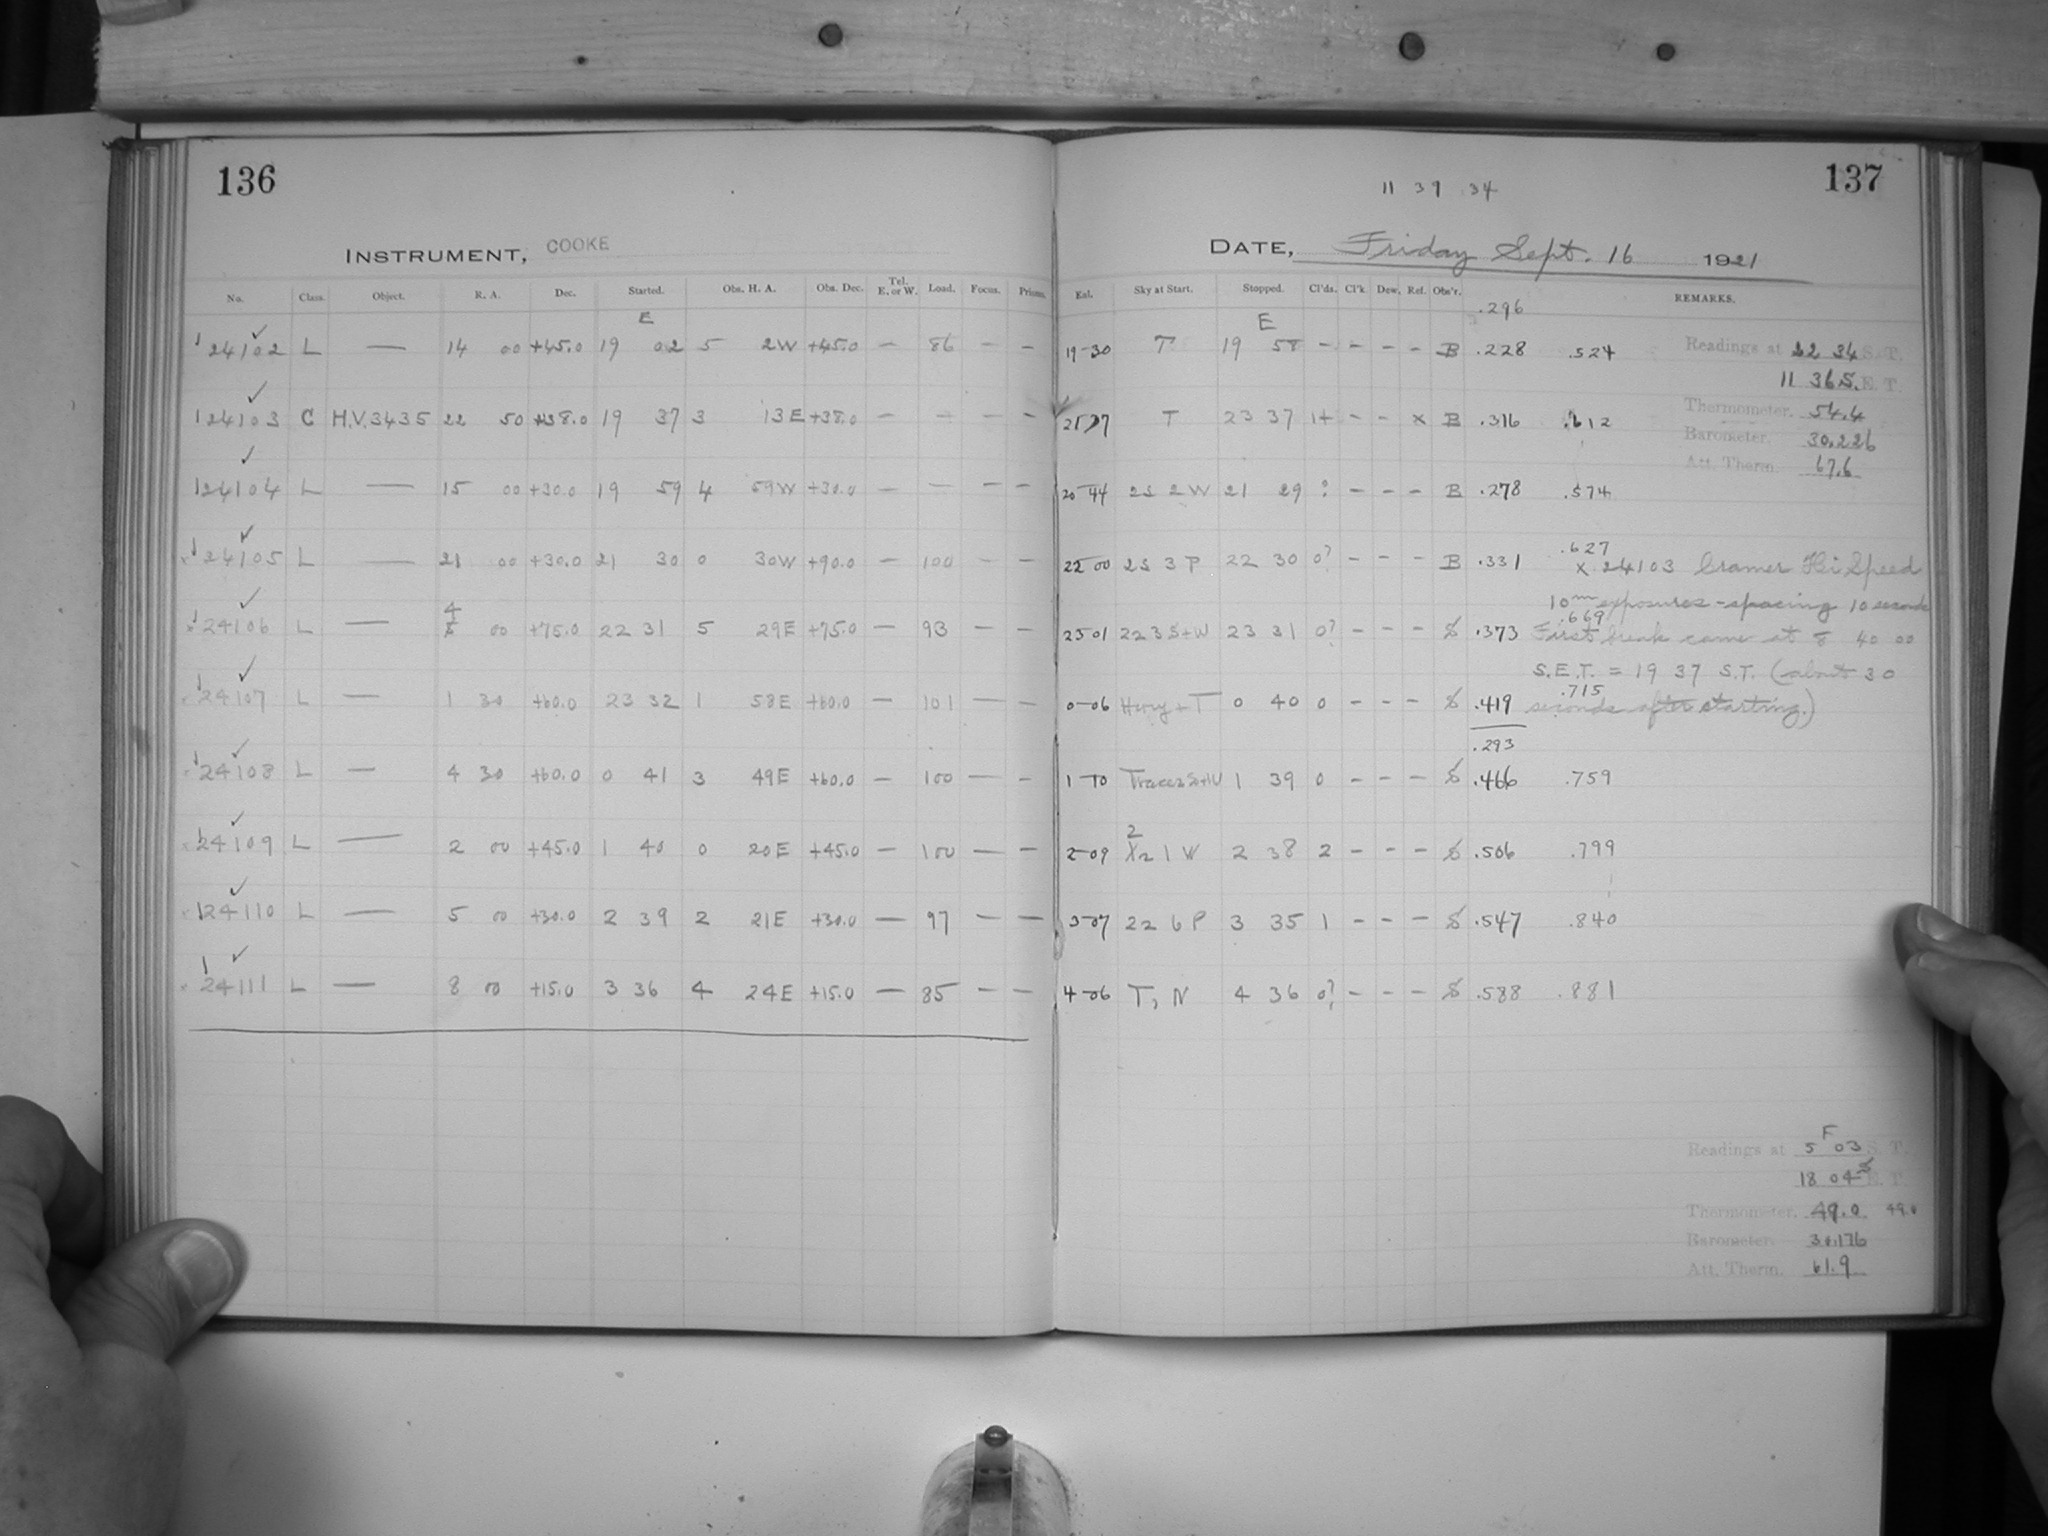 136
INSTRUMENT, COOKE
No. Class. Object. R. A. Dec. Started. Obs. H. A. Obs. Dec. Tel. E. or W. Load. Focus. Prisms.
E
24102 L — 14 00 +45.0 19 02 5 2W +45.0 — 86 — —
24103 C H.V.3435 22 50 +38.0 19 37 3 13E +38.0 — — — —
24104 L — 15 00 +30.0 19 59 4 59W +30.0 — — — —
24105 L — 21 00 +30.0 21 30 0 30W +90.0 — 100 — —
4
24106 L — 5 00 +75.0 22 31 5 29E +75.0 — 93 — —
24107 L — 1 30 +60.0 23 32 1 58E +60.0 — 101 — —
24108 L — 4 30 +60.0 0 41 3 49E +60.0 — 100 — —
24109 L — 2 00 +45.0 1 40 0 20E +45.0 — 100 — —
24110 L — 5 00 +30.0 2 39 2 21E +30.0 — 97 — —
24111 L — 8 00 +15.0 3 36 4 24E +15.0 — 85 — —
137
11 39 34
DATE, Friday Sept. 16 1921
Eal. Sky at Start. Stopped. Cl'ds. Cl'k. Dew. Ref. Obs'r. REMARKS.
.296
E
19-30 T 19 58 - - - - B .228 .524
Readings at 22 34 S. T.
11 36 S. E. T.
Thermometer. 54.4
21 37 T 23 37 1+ - - x B .316 .612
Barometer. 30.226
Att. Therm. 67.6
20 44 2S 2 W 21 29 ? - - - B .278 .574
.627
22 00 2S 3 P 22 30 0? - - - B .331 x 24103 Cramer Hi Speed
10m exposures - spacing 10 seconds
.669
23 01 22 3 S+W 23 31 0? - - - S .373 First break came at 8 40 00
S.E.T. = 19 37 S.T. (about 30
.715
0-06 Hazy + T 0 40 0 - - - S .419 seconds after starting.)
.293
1-10 Traces S+W 1 39 0 - - - S .466 .759
2
2-09 X2 1 W 2 38 2 - - - S .506 .799
3-07 22 6 P 3 35 1 - - - S .547 .840
4-06 T, N 4 36 0? - - - S .588 .881
F
Readings at 5 03 S. T.
18 04 E. T.
Thermometer. 49.0 49.0
Barometer. 30.176
Att. Therm. 61.9